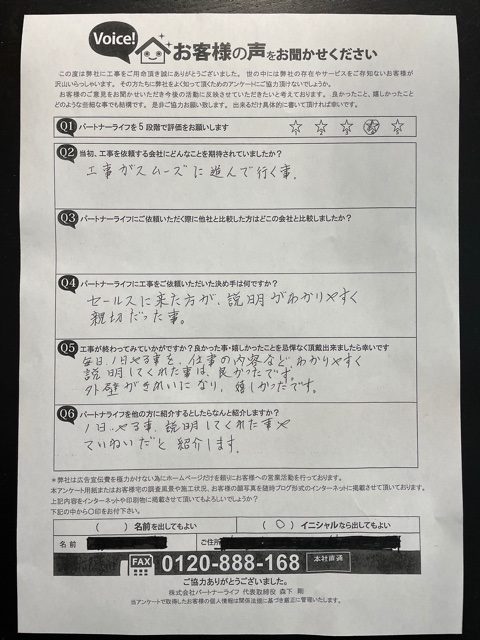 Voice!
お客様の声をお聞かせください
この度は弊社に工事をご用命頂き誠にありがとうございました。世の中には弊社の存在やサービスをご存知ないお客様が
沢山いらっしゃいます。その方たちに弊社をよく知って頂くためのアンケートにご協力頂けないでしょうか。
お客様のご意見をお聞かせいただき今後の活動に反映させていただきたいと考えております。良かったこと、嬉しかったこと
どのような些細な事でも結構です。是非ご協力お願い致します。出来るだけ具体的に書いて頂ければ幸いです。
Q1 パートナーライフを5段階で評価をお願いします ☆1 ☆2 ☆3 ☆4 ☆5
Q2 当初、工事を依頼する会社にどんなことを期待されていましたか?
工事がスムーズに進んで行く事。
Q3 パートナーライフにご依頼いただく際に他社と比較した方はどこの会社と比較しましたか?
Q4 パートナーライフに工事をご依頼いただいた決め手は何ですか?
セールスに来た方が、説明がわかりやすく
親切だった事。
Q5 工事が終わってみていかがですか?良かった事・嬉しかったことを忌憚なく頂戴出来ましたら幸いです
毎日、1日やる事を、仕事の内容などわかりやすく
説明してくれた事は、良かったです。
外壁がきれいになり、嬉しかったです。
Q6 パートナライフを他の方に紹介するとしたらなんと紹介しますか?
1日、やる事、説明してくれた事や
ていねいだと紹介します。
＊弊社は広告宣伝費を極力かけない為にホームページだけを頼りにお客様への営業活動を行っております。
本アンケート用紙またはお客様宅の調査風景や施工状況、お客様の顔写真を随時ブログ形式のインターネットに掲載させて頂いております。
上記内容をインターネットや印刷物に掲載させて頂いてもよろしいでしょうか?
下記の中から〇印をお付下さい。
( ) 名前を出してもよい ( 〇 ) イニシャルなら出してもよい
名前 ご住所
FAX 0120-888-168 本社直通
ご協力ありがとうございました。
株式会社パートナーライフ 代表取締役 森下 剛
当アンケートで取得したお客様の個人情報は関係法規に基づき厳正に管理いたします。